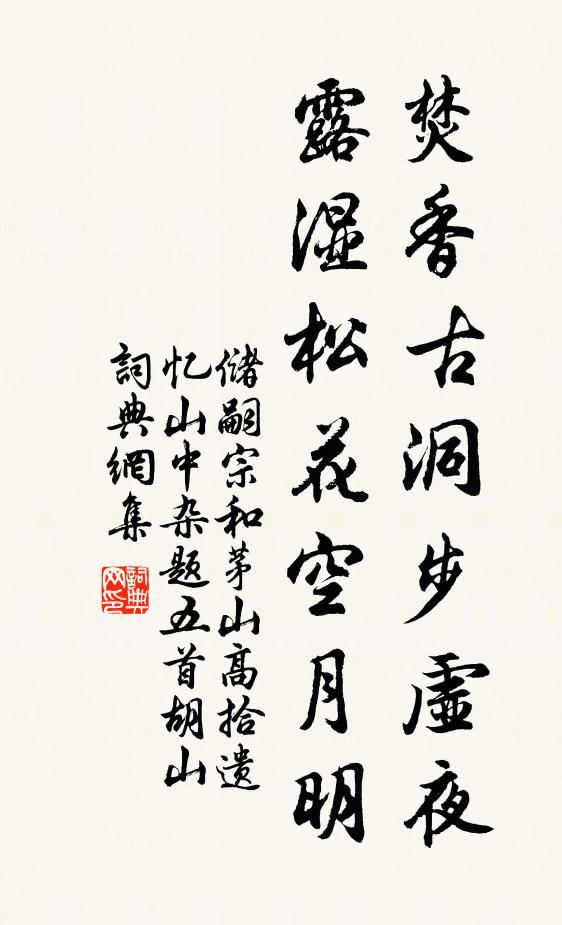 焚香古洞步虛夜
露湿松花空月明
储嗣宗和茅山高拾遗
忆山中杂题五首胡山
詞典網集
詞典
网印